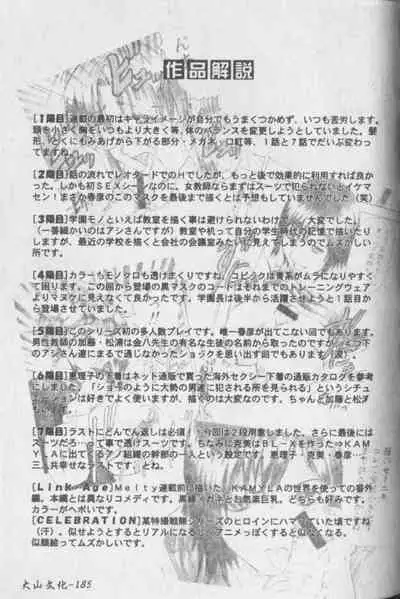 作品解説
[1限目]連載の最初はキャライメージが自分でもうまくつかめず、いつも苦労します。
頭を小さく胸をいつもより大きく等、体のバランスを変更しようとしていました。髪
形、とくにもみあげから下がる部分・メガネ・口町等、1話と7話でだいぶ変わっ
てますね。
[2限目]話の流れでレオタードでのHでしたが、もっと後で効果的に利用すれば良か
った。しかも初SEXシーンなのに。女教師ならまずはスーツで犯られないとイケマ
セン!まさか春彦のこのマスクを最後まで描くとは予想もしていませんでした(笑)
[3限目]学園モノといえば教室を描く事は避けられないわけで… 大変でした。
(一番細かいのはアシさんですが)教室や机って自分の学生時代の記憶で描いたり
しますが、最近の学校を描くと会社の会議室みたいに見えてしまうのでムズかしい
所です。
[4限目]カラーもモノクロも透けまくりですね。コピックは青系がムラになりやすく
て困ります。この回から登場の黒マスクのコートはそれまでのトレーニングウェア
よりマヌケに見えなくて良かったです。学園長は後半から活躍させようと1話目か
ら登場させていました。
[5限目]このシリーズ初の多人数プレイです。唯一春彦が出てこない回でもあります。
男性教師の加藤・松浦は金八先生の有名な生徒の名前から取ったのですが
のアシさん達にまるで通じなかったショックを思い出す回でもあります(涙)。
[6限目]恵理子の下着はネット通販で買った海外セクシー下着の通販カタログを参考
にしました。「ショーのように大勢の男達に犯される所を見られる」というシチュ
エーションは好きでよく使いますが、描くのは大変なのです。ちゃんと加藤と松
[7限目]ラストにどんでん返しは必須!今回は2段用意しました。さらに最後には
スーツだろって事で透けスーツです。ちなみに克美はBL-Xを作ったKAM
YLAに出てくるアノ組織の幹部の一人という設定です。恵理子・克美・春彦…
三人共幸せなラストです。とね。
[Link Age]Melty連載前に描いた、KAMYLAの世界を使っての番外
編。本編とは異なりコメディです。黒縁メガネとお気楽巨乳。どちらも好みです。
カラーがヘボいです。
[CELEBRATION]某特撮戦隊シリーズのヒロインにハマっていた頃ですね
(汗)。似せようとするとリアルになるしアニメっぽくすると似なくなる。
似顔絵ってムズかしいです。
大山文化-185